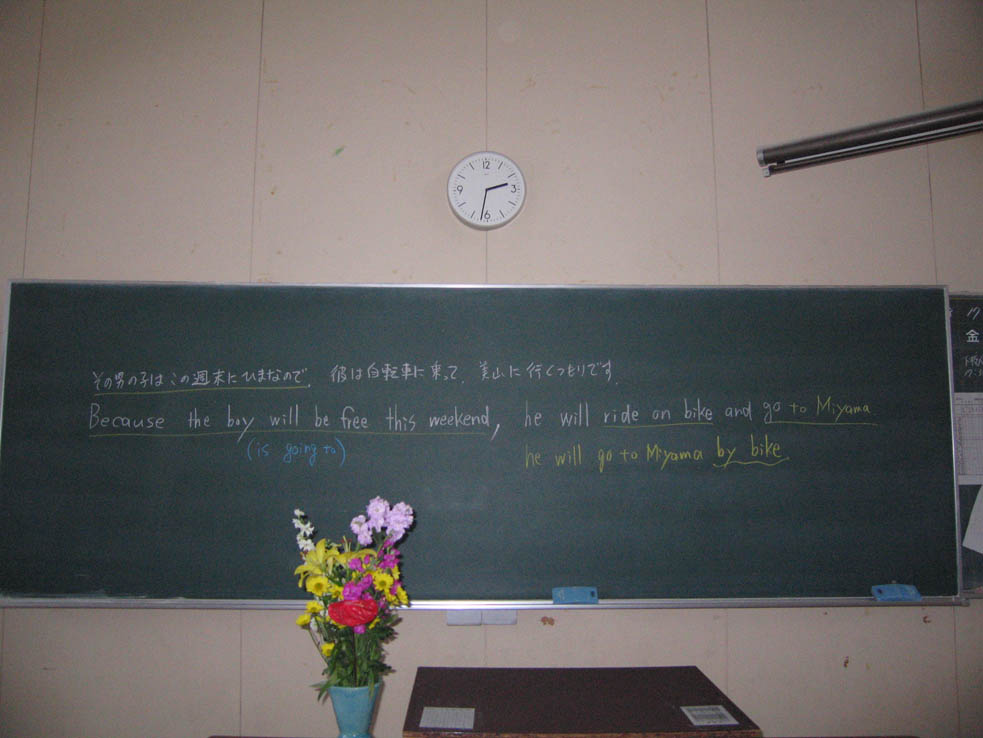 12
3
6
9
その男の子はこの週末にひまなので、彼は自転車に乗って、美山に行くつもりです.
Because the boy will be free this weekend, he will ride on bike and go to Miyama
(is going to)
he will go to Miyama by bike.
金